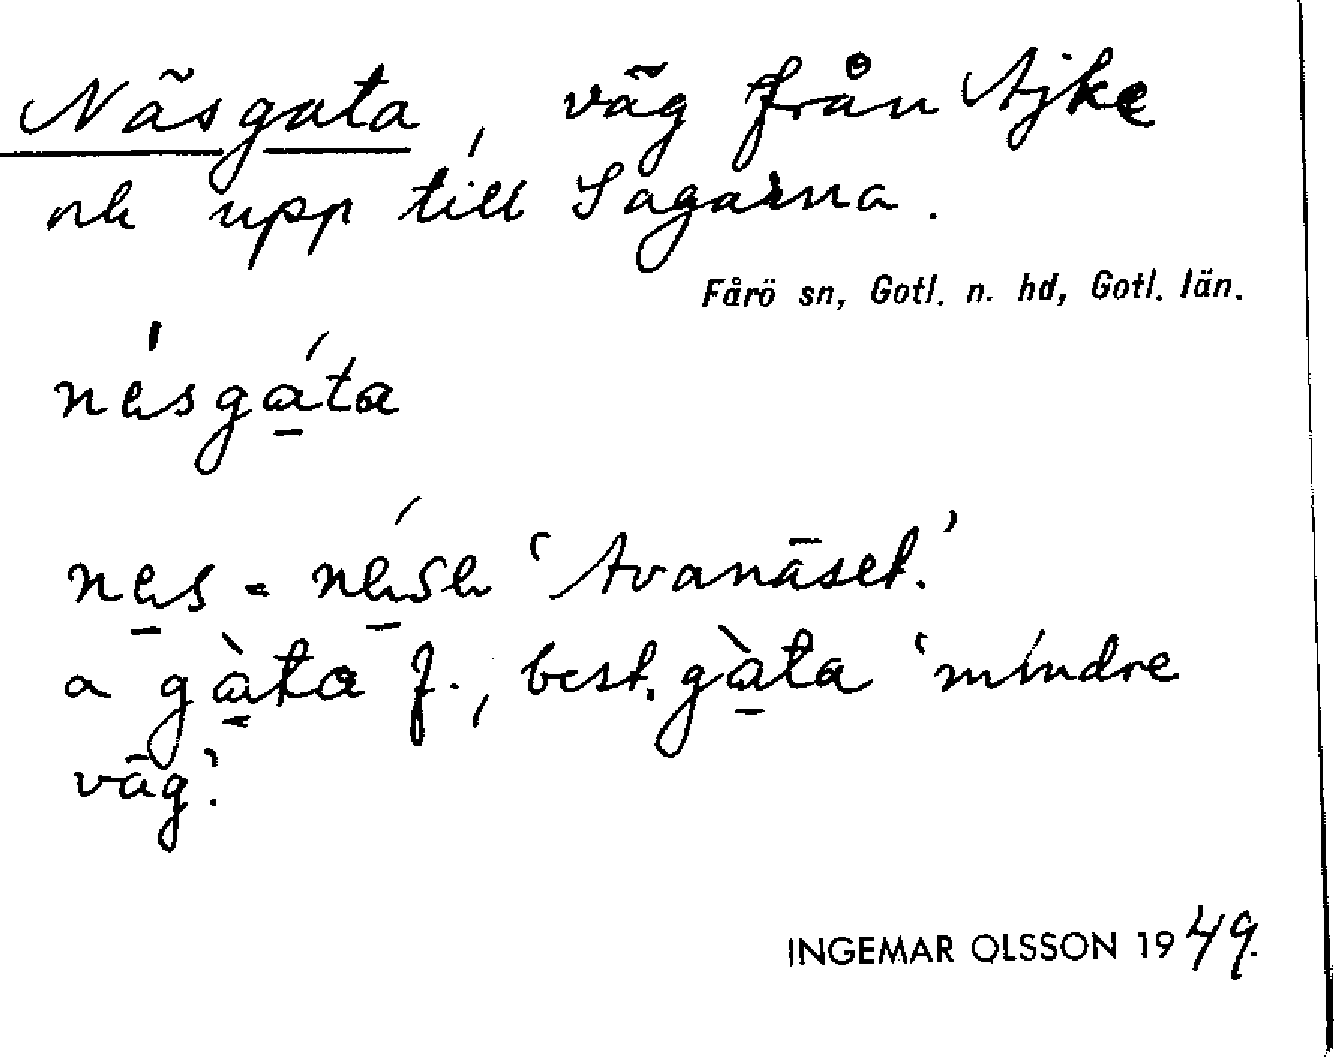 Näsgata, väg från Ajke
och upp till Sagarna.
Fårö sn, Gotl. n. hd, Gotl. län.
näsgá̱ta
nä̱s = nä̱́sä 'Avanäset.'
a gà̱ta f., best. gà̱ta 'mindre
väg.'
INGEMAR OLSSON 1949.